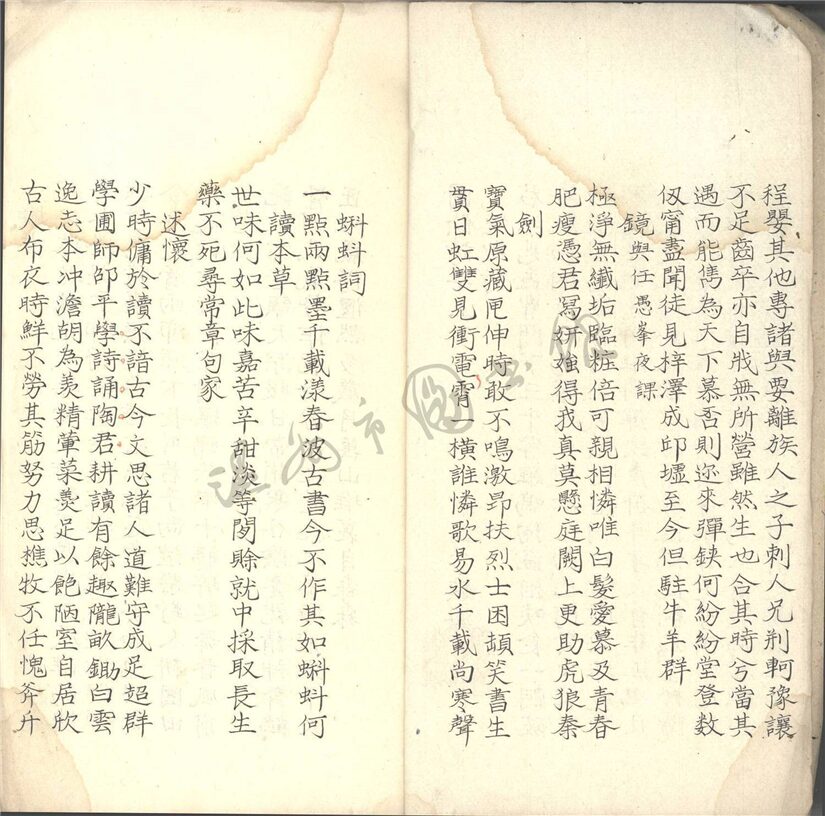 程嬰其他專諸與要離族人之子刺人兄荊軻豫讓
不足齒卒亦自戕無所營雖然生也合其時兮當其
遇而能雋為天下慕否則邇來彈鋏何紛紛堂登數
仭甯盡聞徒見梓澤成邱墟至今但駐牛羊群
鏡與任愚峯夜課
極淨無纖垢臨粧倍可親相憐唯白髮愛慕及青春
肥瘦憑君寫妍媸得我真莫懸庭闕上更助虎狼秦
劍
寶氣原藏匣伸時敢不鳴激昂扶烈士困頓笑書生
貫日虹雙見衝電霄一橫誰憐歌易水千載尚寒聲
蝌蚪詞
一點兩點墨千載漾春波古書今不作其如蝌蚪何
讀本草
世味何如此味嘉苦辛甜淡等閿賒就中採取長生
藥不死尋常章句家
述懷
少時傭於讀不諳古今文思諸人道難守成足超群
學圃師邵平學詩誦陶君耕讀有餘趣隴畝鋤白雲
逸志本冲澹胡為羨精葷菜羹足以飽陋室自居欣
古人布衣時鮮不勞其筋努力思樵牧不任愧斧斤
圖
市